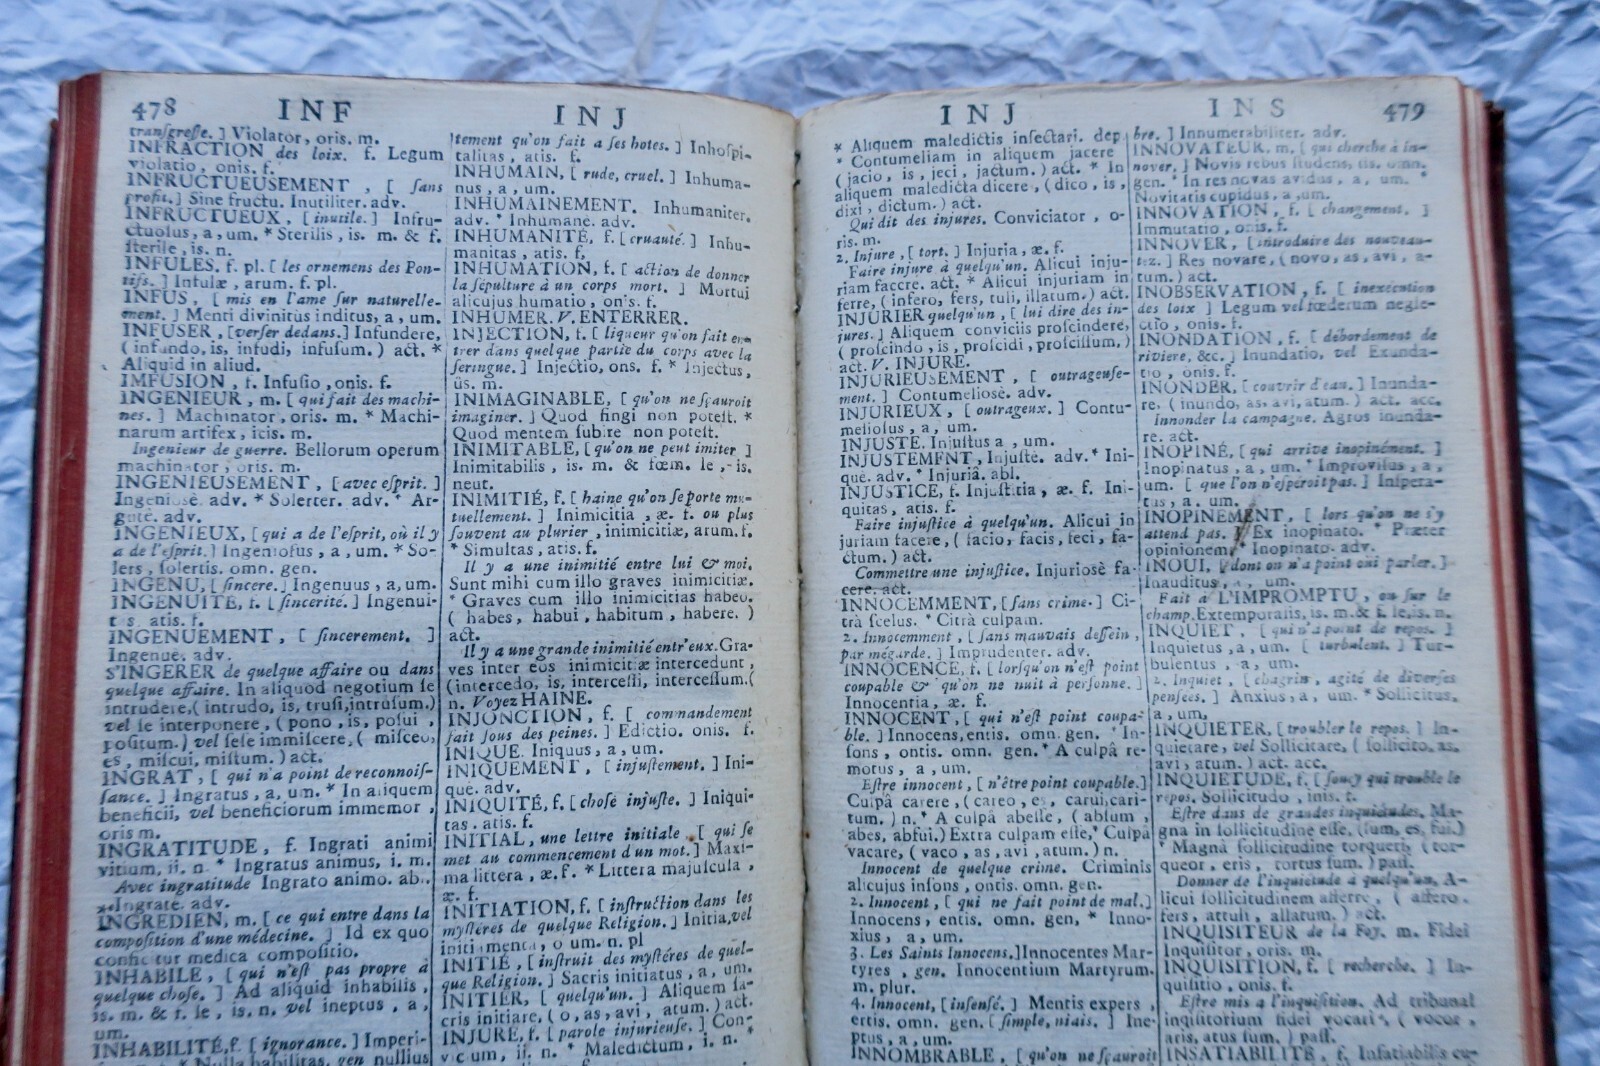 478 INF INJ
transgresse. ] Violator, oris. m.
INFRACTION des loix. f. Legum
violatio, onis. f.
INFRUCTUEUSEMENT , [ ſans
profit. ] Sine fructu. Inutiliter. adv.
INFRUCTUEUX, [ inutile. ] Infru-
ctuoſus, a, um. * Sterilis, is. m. & f.
ſterile, is. n.
INFULES. f. pl. [ les ornemens des Pon-
tifs. ] Infulæ, arum. f. pl.
INFUS , [ mis en l'ame ſur naturelle-
ment. ] Menti divinitus inditus, a, um.
INFUSER , [verſer dedans.] Infundere,
( infundo, is, infudi, infuſum. ) act. *
Aliquid in aliud.
IMFUSION , f. Infuſio, onis. f.
INGENIEUR , m. [ qui fait des machi-
nes. ] Machinator, oris. m. * Machi-
narum artifex, icis. m.
Ingenieur de guerre. Bellorum operum
machinator, oris. m.
INGENIEUSEMENT , [ avec eſprit. ]
Ingeniosè. adv. * Solerter. adv. * Ar-
gutè. adv.
INGENIEUX, [ qui a de l'eſprit, où il y
a de l'eſprit. ] Ingenioſus , a , um. * So-
lers , ſolertis. omn. gen.
INGENU, [ ſincere. ] Ingenuus , a, um.
INGENUITÉ, f. [ ſincerité. ] Ingenui-
t s. atis. f.
INGENUEMENT , [ ſincerement. ]
Ingenuè. adv.
S'INGERER de quelque affaire ou dans
quelque affaire. In aliquod negotium ſe
intrudere, (intrudo, is, truſi, intruſum.)
vel ſe interponere , ( pono , is, poſui ,
poſitum. ) vel ſeſe immiſcere, ( miſceo,
es , miſcui, miſtum. ) act.
INGRAT , [ qui n'a point de reconnoiſ-
ſance. ] Ingratus , a, um. * In aliquem
beneficii, vel beneficiorum immemor ,
oris m.
INGRATITUDE , f. Ingrati animi
vitium, ii. n. * Ingratus animus, i. m.
Avec ingratitude Ingrato animo. ab..
* Ingratè. adv.
INGREDIEN, m. [ ce qui entre dans la
compoſition d'une médecine. ] Id ex quo
conficitur medica compoſitio.
INHABILE , [ qui n'eſt pas propre à
quelque choſe. ] Ad aliquid inhabilis ,
is. m. & f. le , is. n. vel ineptus , a ,
um.
INHABILITÉ, f. [ ignorance. ] Imperi-
* Nulla habilitas. gen nullius
ltement qu'on fait a ſes hotes. ] Inhoſpi-
talitas , atis. f.
INHUMAIN, [ rude, cruel. ] Inhuma-
nus , a , um.
INHUMAINEMENT. Inhumaniter.
adv. * Inhumanè. adv.
INHUMANITÉ, f. [ cruauté. ] Inhu-
manitas , atis. f.
INHUMATION, f. [ action de donner
la ſépulture à un corps mort. ] Mortui
alicujus humatio , onis. f.
INHUMER. V. ENTERRER.
INJECTION, f. [ liqueur qu'on fait en-
trer dans quelque partie du corps avec la
ſeringue. ] Injectio, ons. f. * Injectus,
ûs. m.
INIMAGINABLE, [ qu'on ne ſçauroit
imaginer. ] Quod fingi non poteſt. *
Quod mentem ſubire non poteſt.
INIMITABLE , [ qu'on ne peut imiter ]
Inimitabilis , is. m. & fœm. le , -is.
neut.
INIMITIÉ, f. [ haine qu'on ſe porte mu-
tuellement. ] Inimicitia , æ. f. ou plus
ſouvent au plurier , inimicitiæ, arum. f.
* Simultas , atis. f.
Il y a une inimitié entre lui & moi.
Sunt mihi cum illo graves inimicitiæ.
* Graves cum illo inimicitias habeo.
( habes , habui , habitum , habere. )
act.
Il y a une grande inimitié entr'eux. Gra-
ves inter eos inimicitiæ intercedunt ,
(intercedo, is, interceſſi, interceſſum. (
n. Voyez HAINE.
INJONCTION , f. [ commandement
fait ſous des peines. ] Edictio. onis. f.
INIQUE. Iniquus , a , um.
INIQUEMENT , [ injuſtement. ] Ini-
què. adv.
INIQUITÉ, f. [ choſe injuſte. ] Iniqui-
tas. atis. f.
INITIAL , une lettre initiale , [ qui ſe
met au commencement d'un mot. ] Maxi-
ma littera , æ. f. * Littera majuſcula ,
æ. f.
INITIATION, f. [ inſtruction dans les
myſtéres de quelque Religion. ] Initia, vel
initiamenta, o um. n. pl
INITIÉ , [ inſtruit des myſtéres de quel-
que Religion. ] Sacris initiatus , a , um.
INITIER, [ quelqu'un. ] Aliquem ſa-
cris initiare. ( o, as , avi , atum. ) act.
INJURE, f. [ parole injurieuſe. ] Con-
vicium, ii. n. * Maledictum, i. n.
INJ INS 479
* Aliquem maledictis inſectari. dep
* Contumeliam in aliquem jacere
( jacio , is , jeci , jactum. ) act. * In
aliquem maledicta dicere , ( dico , is ,
dixi , dictum. ) act.
Qui dit des injures. Conviciator , o-
ris. m.
2. Injure , [ tort. ] Injuria, æ. f.
Faire injure à quelqu'un. Alicui inju-
riam facere. act. * Alicui injuriam in
ferre, ( infero, fers, tuli, illatum. ) act.
INJURIER quelqu'un , [ lui dire des in-
jures. ] Aliquem conviciis proſcindere,
( proſcindo , is , proſcidi , proſciſſum. )
act. V. INJURE.
INJURIEUSEMENT , [ outrageuſe-
ment. ] Contumeliosè. adv.
INJURIEUX , [ outrageux. ] Contu-
melioſus , a , um.
INJUSTE. Injuſtus a , um.
INJUSTEMENT, Injuſtè. adv. * Ini-
què. adv. * Injuriâ. abl.
INJUSTICE, f. Injuſtitia , æ. f. Ini-
quitas , atis. f.
Faire injuſtice à quelqu'un. Alicui in
juriam facere , ( facio , facis , feci , fa-
ctum. ) act.
Commettre une injuſtice. Injuriosè fa-
cere. act.
INNOCEMMENT, [ ſans crime. ] Ci-
trà ſcelus. * Citrà culpam.
2. Innocemment , [ ſans mauvais deſſein ,
par mégarde. ] Imprudenter. adv.
INNOCENCE, f. [ lorſqu'on n'eſt point
coupable & qu'on ne nuit à perſonne. ]
Innocentia , æ. f.
INNOCENT , [ qui n'eſt point coupa-
ble. ] Innocens, entis. omn. gen. * In-
ſons , ontis. omn. gen. * A culpâ re-
motus , a , um.
Eſtre innocent , [ n'être point coupable. ]
Culpâ carere , ( careo , es , carui, cari-
tum. ) n. * A culpâ abeſſe , ( abſum ,
abes, abfui. ) Extra culpam eſſe, * Culpâ
vacare, ( vaco , as , avi , atum. ) n.
Innocent de quelque crime. Criminis
alicujus inſons , ontis. omn. gen.
2. Innocent , [ qui ne fait point de mal. ]
Innocens , entis. omn. gen. * Inno-
xius , a , um.
3. Les Saints Innocens. ] Innocentes Mar-
tyres , gen. Innocentium Martyrum.
m. plur.
4. Innocent, [ inſenſé. ] Mentis expers ,
ertis. omn. gen. [ ſimple, niais. ] Ine-
ptus , a , um.
INNOMBRABLE , [ qu'on ne ſçauroit
bre. ] Innumerabiliter. adv.
INNOVATEUR, m, [ qui cherche à in-
nover. ] Novis rebus ſtudens, tis. omn.
gen. * In res novas avidus , a , um. *
Novitatis cupidus , a , um.
INNOVATION , f. [ changement. ]
Immutatio , onis. f.
INNOVER , [ introduire des nouveau-
tez. ] Res novare, ( novo, as, avi , a-
tum. ) act.
INOBSERVATION , f. [ inexécution
des loix ] Legum vel fœderum negle-
ctio , onis. f.
INONDATION , f. [ débordement de
riviére, &c. ] Inundatio, vel Exunda-
tio , onis. f.
INONDER, [ couvrir d'eau. ] Inunda-
re, ( inundo, as, avi, atum. ) act. acc.
Innonder la campagne. Agros inunda-
re. act.
INOPINÉ, [ qui arrive inopinément. ]
Inopinatus , a , um. * Improviſus , a ,
um. [ que l'on n'eſpéroit pas. ] Inſpera-
tus , a , um.
INOPINEMENT , [ lors qu'on ne s'y
attend pas. ] Ex inopinato. * Præter
opinionem * Inopinato. adv.
INOUI, [ dont on n'a point oui parler. ]
Inauditus, a , um.
Fait à L'IMPROMPTU , ou ſur le
champ. Extemporalis, is. m. & f. le, is. n.
INQUIET , [ qui n'a point de repos. ]
Inquietus , a, um. [ turbulent. ] Tur-
bulentus , a , um.
2. Inquiet , [ chagrin , agité de diverſes
penſées. ] Anxius, a , um. * Sollicitus,
a , um.
INQUIETER, [ troubler le repos. ] In-
quietare, vel Sollicitare, ( ſollicito, as,
avi , atum. ) act. acc.
INQUIETUDE, f. [ ſoucy qui trouble le
repos. Sollicitudo , inis. f.
Eſtre dans de grandes inquiétudes. Ma-
gna in ſollicitudine eſſe, (ſum, es, fui.)
* Magnâ ſollicitudine torqueri, ( tor-
queor , eris , tortus ſum. ) paſſ.
Donner de l'inquiétude à quelqu'un, A-
licui ſollicitudinem afferre, ( affero.
fers, attuli , allatum. ) act.
INQUISITEUR de la Foy. m. Fidei
Inquiſitor , oris. m.
INQUISITION, f. [ recherche. ] In-
quiſitio , onis. f.
Eſtre mis à l'inquiſition. Ad tribunal
inquiſitorium fidei vocari , ( vocor ,
aris, atus ſum. ) paſſ.
INSATIABILITÉ , f. Inſatiabilis cu-